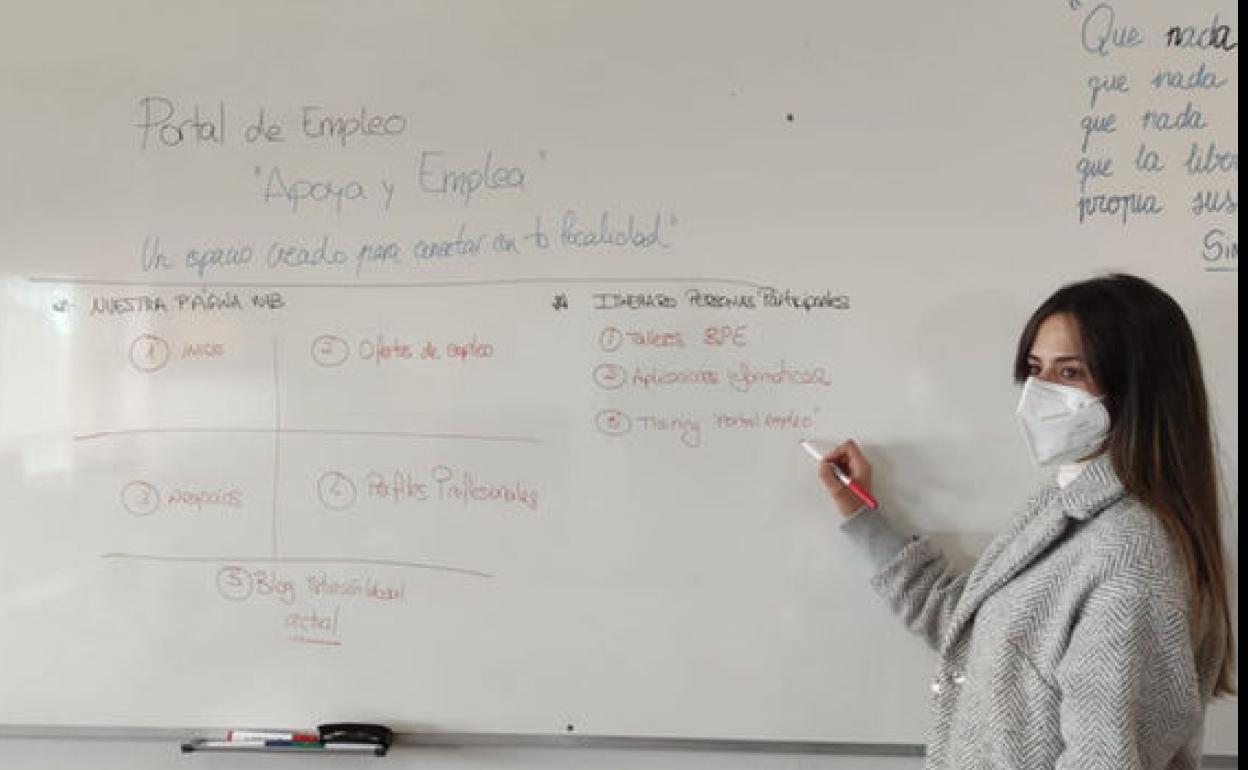 Portal de Empleo
"Apoya y Emplea"
Un espacio creado para conectar con tu localidad"
NUESTRA PÁGINA WEB
① INICIO
② Ofertas de empleo
③ Negocios
④ Perfiles Profesionales
⑤ Blog situación laboral
actual
ITINERARIO PERSONAS Participantes
① Talleres BPE
② Aplicaciones informáticas
③ Training "Portal empleo"
"Que nada
que nada
que nada
que la liber
propia sus